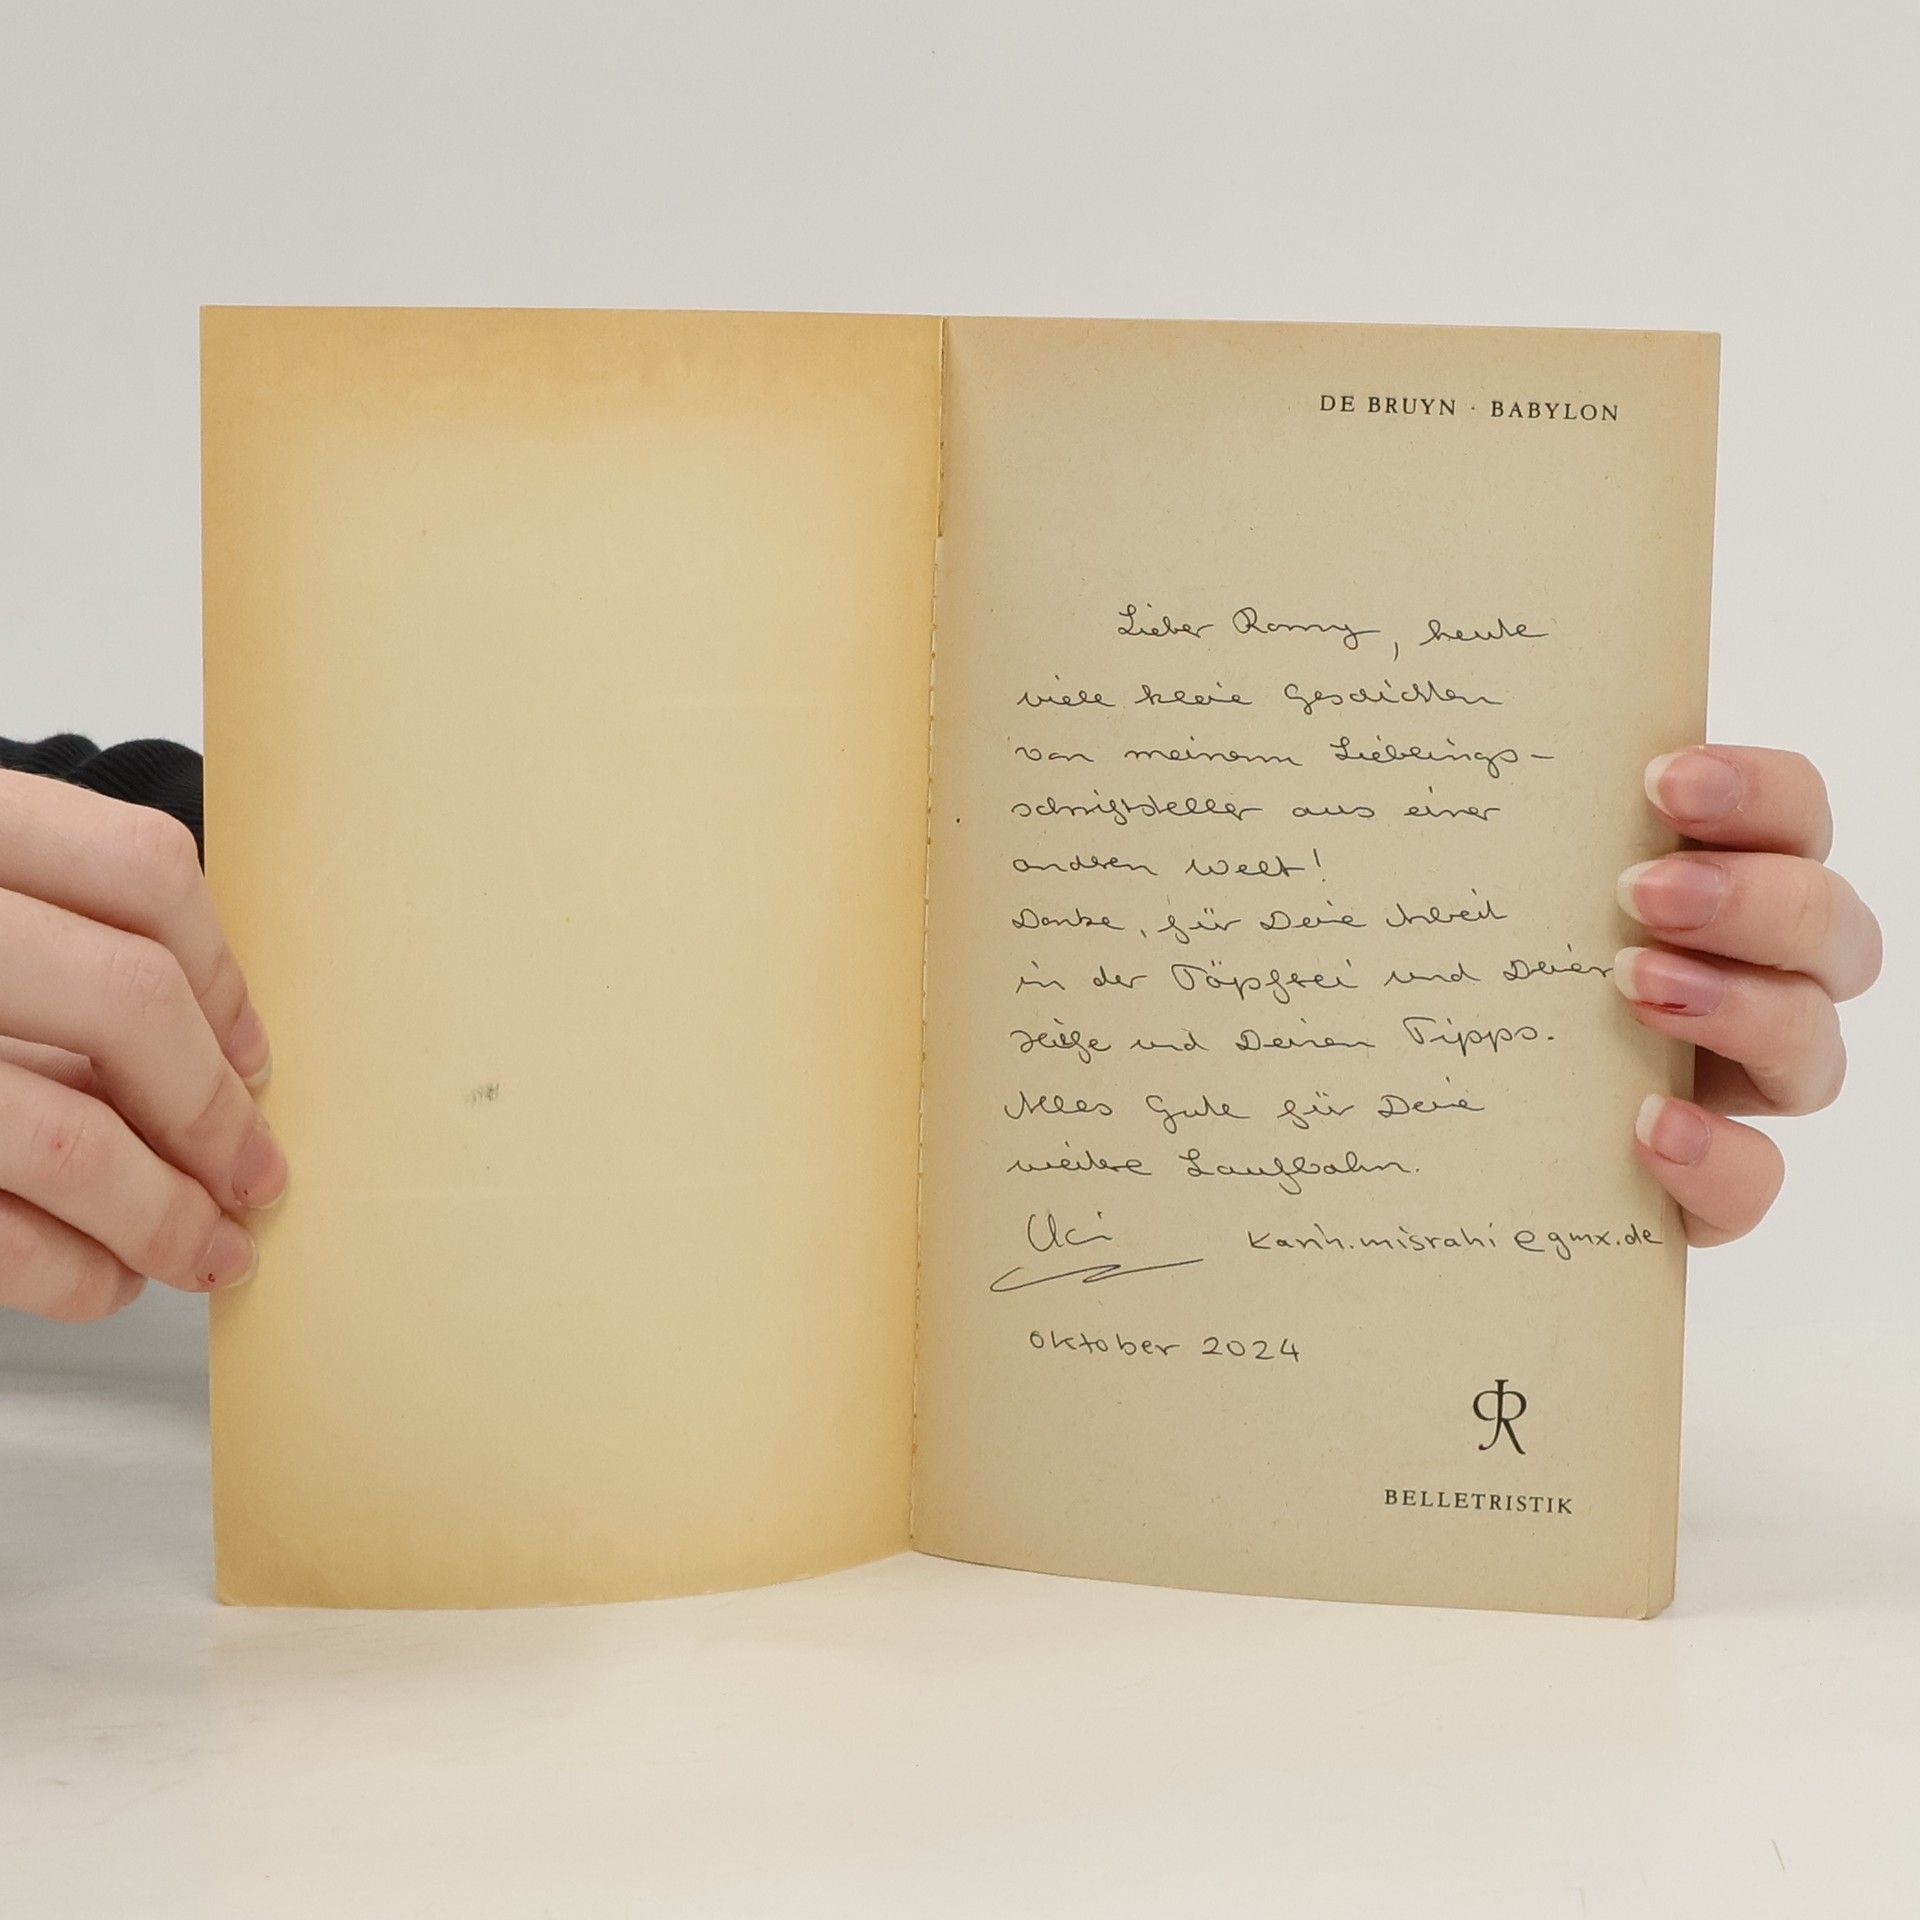 DE BRUYN · BABYLON
Lieber Romy, heute
viele kleine Geschichten
von meinem Lieblings-
schriftsteller aus einer
anderen Welt!
Danke, für Deine Arbeit
in der Töpferei und Deiner
Hilfe und Deinen Tipps.
Alles Gute für Deine
weitere Laufbahn.
karin.misrahi@gmx.de
Oktober 2024
R
BELLETRISTIK